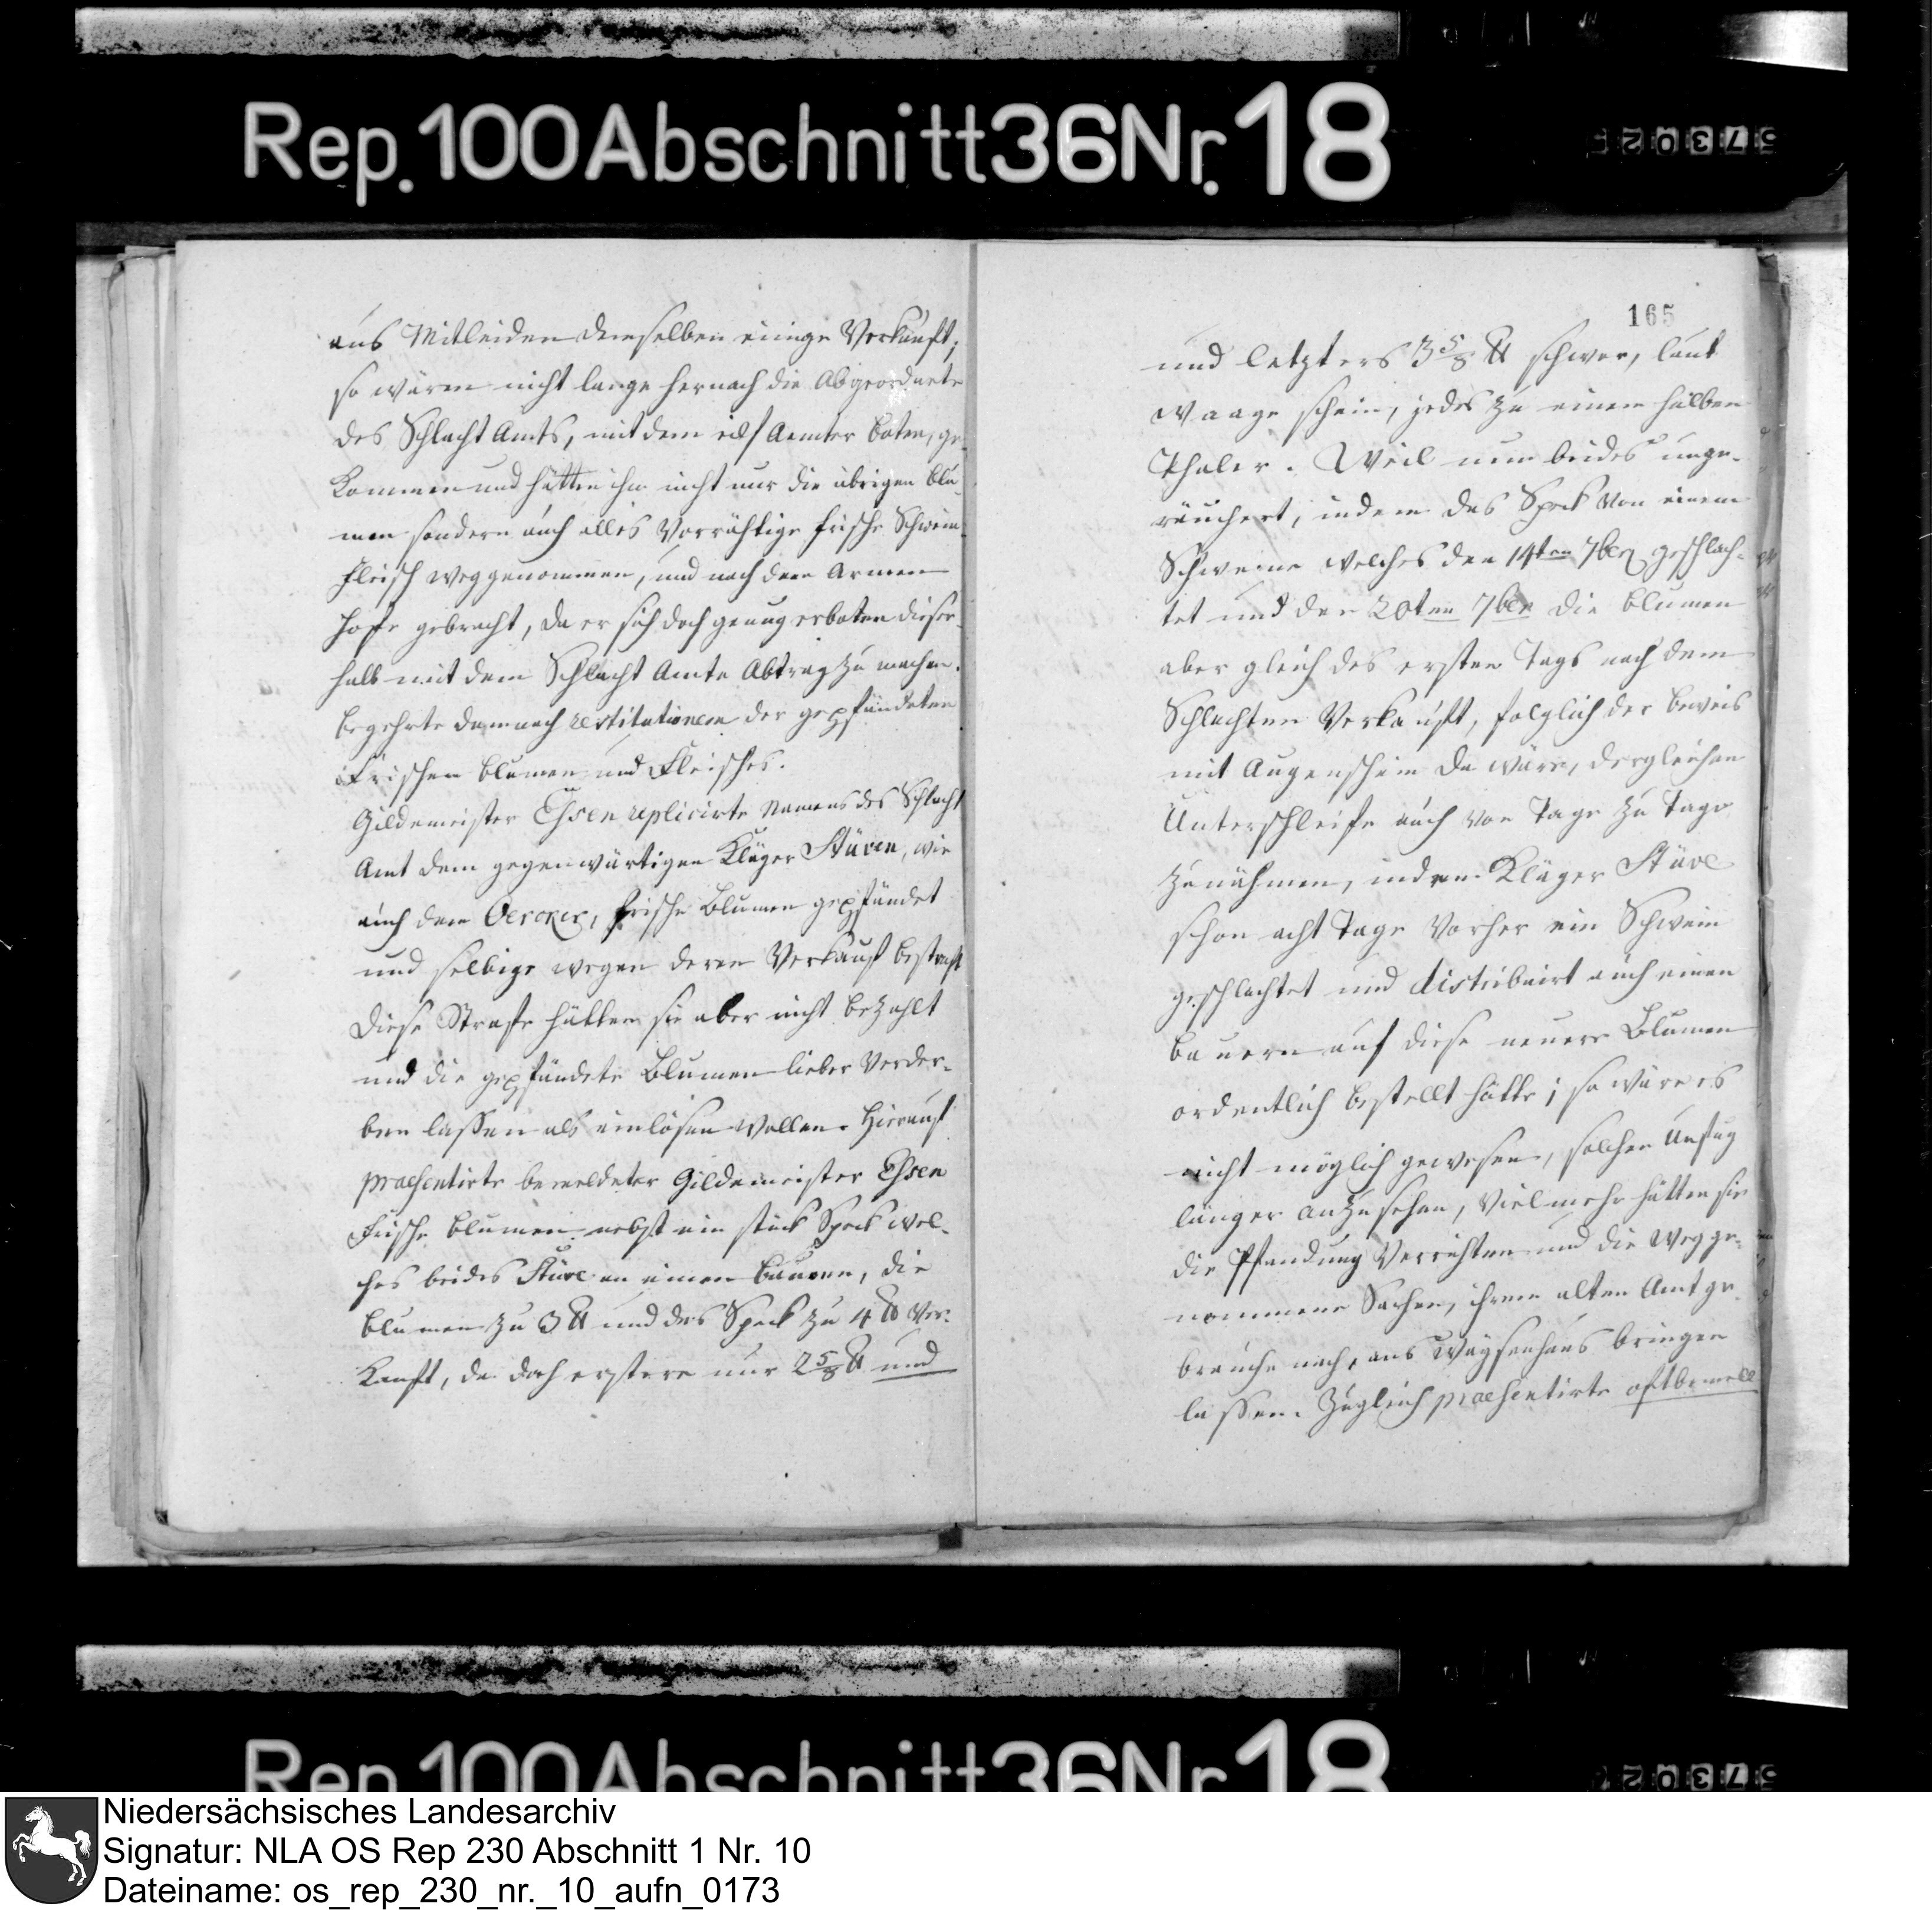 Rep. 100 Abschnitt 36 Nr. 18
aus Mitleiden demselben einige Verkauft;
so wären nicht lange hernach die Abgeordnete
des Schlacht Amts, mit dem eilf Aemter Boten, ge-
kommen und hätten ihm nicht nur die übrigen Blu-
men sondern auch alles Vorräthige frische Schwein-
fleisch weggenommen, und nach dem Armen
Hofe gebracht, da er sich doch genug erboten dieser-
halb mit dem Schlacht Amte Abtrag zu machen.
begehrte demnach restitutionem der gepfändeten
Frischen Blumen und Fleisches.
Gildemeister Ehsen replicirte Namens des Schlacht
Amt dem gegenwärtigen Kläger Stüven, wie
auch dem frische Blumen gepfändet
und selbige wegen deren Verkauf bestraft
Diese Strafe hätten sie aber nicht bezahlt
und die gepfändete Blumen lieber Verder-
ben lassen als einlösen wollen. Hierauf
praesentirte bemeldeter Gildemeister Ehsen
Frische Blumen nebst ein stück Speck wel-
ches beides Stüve an einen Bauren, die
Blumen zu 3 ℔ und das Speck zu 4 ℔ Ver-
kauft, da doch erstere nur 2 5/8 ℔ und
165
und letzters 3 5/8 ℔ schwer, laut
Waage schein, jedes zu einen halben
Thaler. Weil nun beides unge-
räuchert, indem das Speck von einem
Schweine welches den 14ten 7ber geschlach-
tet und den 20ten 7ber die Blumen
aber gleich des ersten Tags nach dem
Schlachten Verkauft, folglich der Beweis
mit Augenschein da wäre, dergleichen
Unterschleife auch von Tage zu Tage
zunähmen, indem Kläger Stüve
schon acht Tage Vorher ein Schwein
geschlachtet und distribuirt auch einen
Bauern auf diese neuere Blumen
ordentlich bestellt hätte; so wäre es
nicht möglich gewesen, solchen Unfug
länger anzusehen, Vielmehr hätten sie
die Pfandung Verrichten und die Wegge-
nommene Sachen, ihrem alten Amt ge-
brauche nach, ans Waysenhaus bringen
lassen. Zugleich praesentirte oftbemell
Rep. 100 Abschnitt 36 Nr. 18
Niedersächsisches Landesarchiv
Signatur: NLA OS Rep 230 Abschnitt 1 Nr. 10
Dateiname: os_rep_230_nr._10_aufn_0173